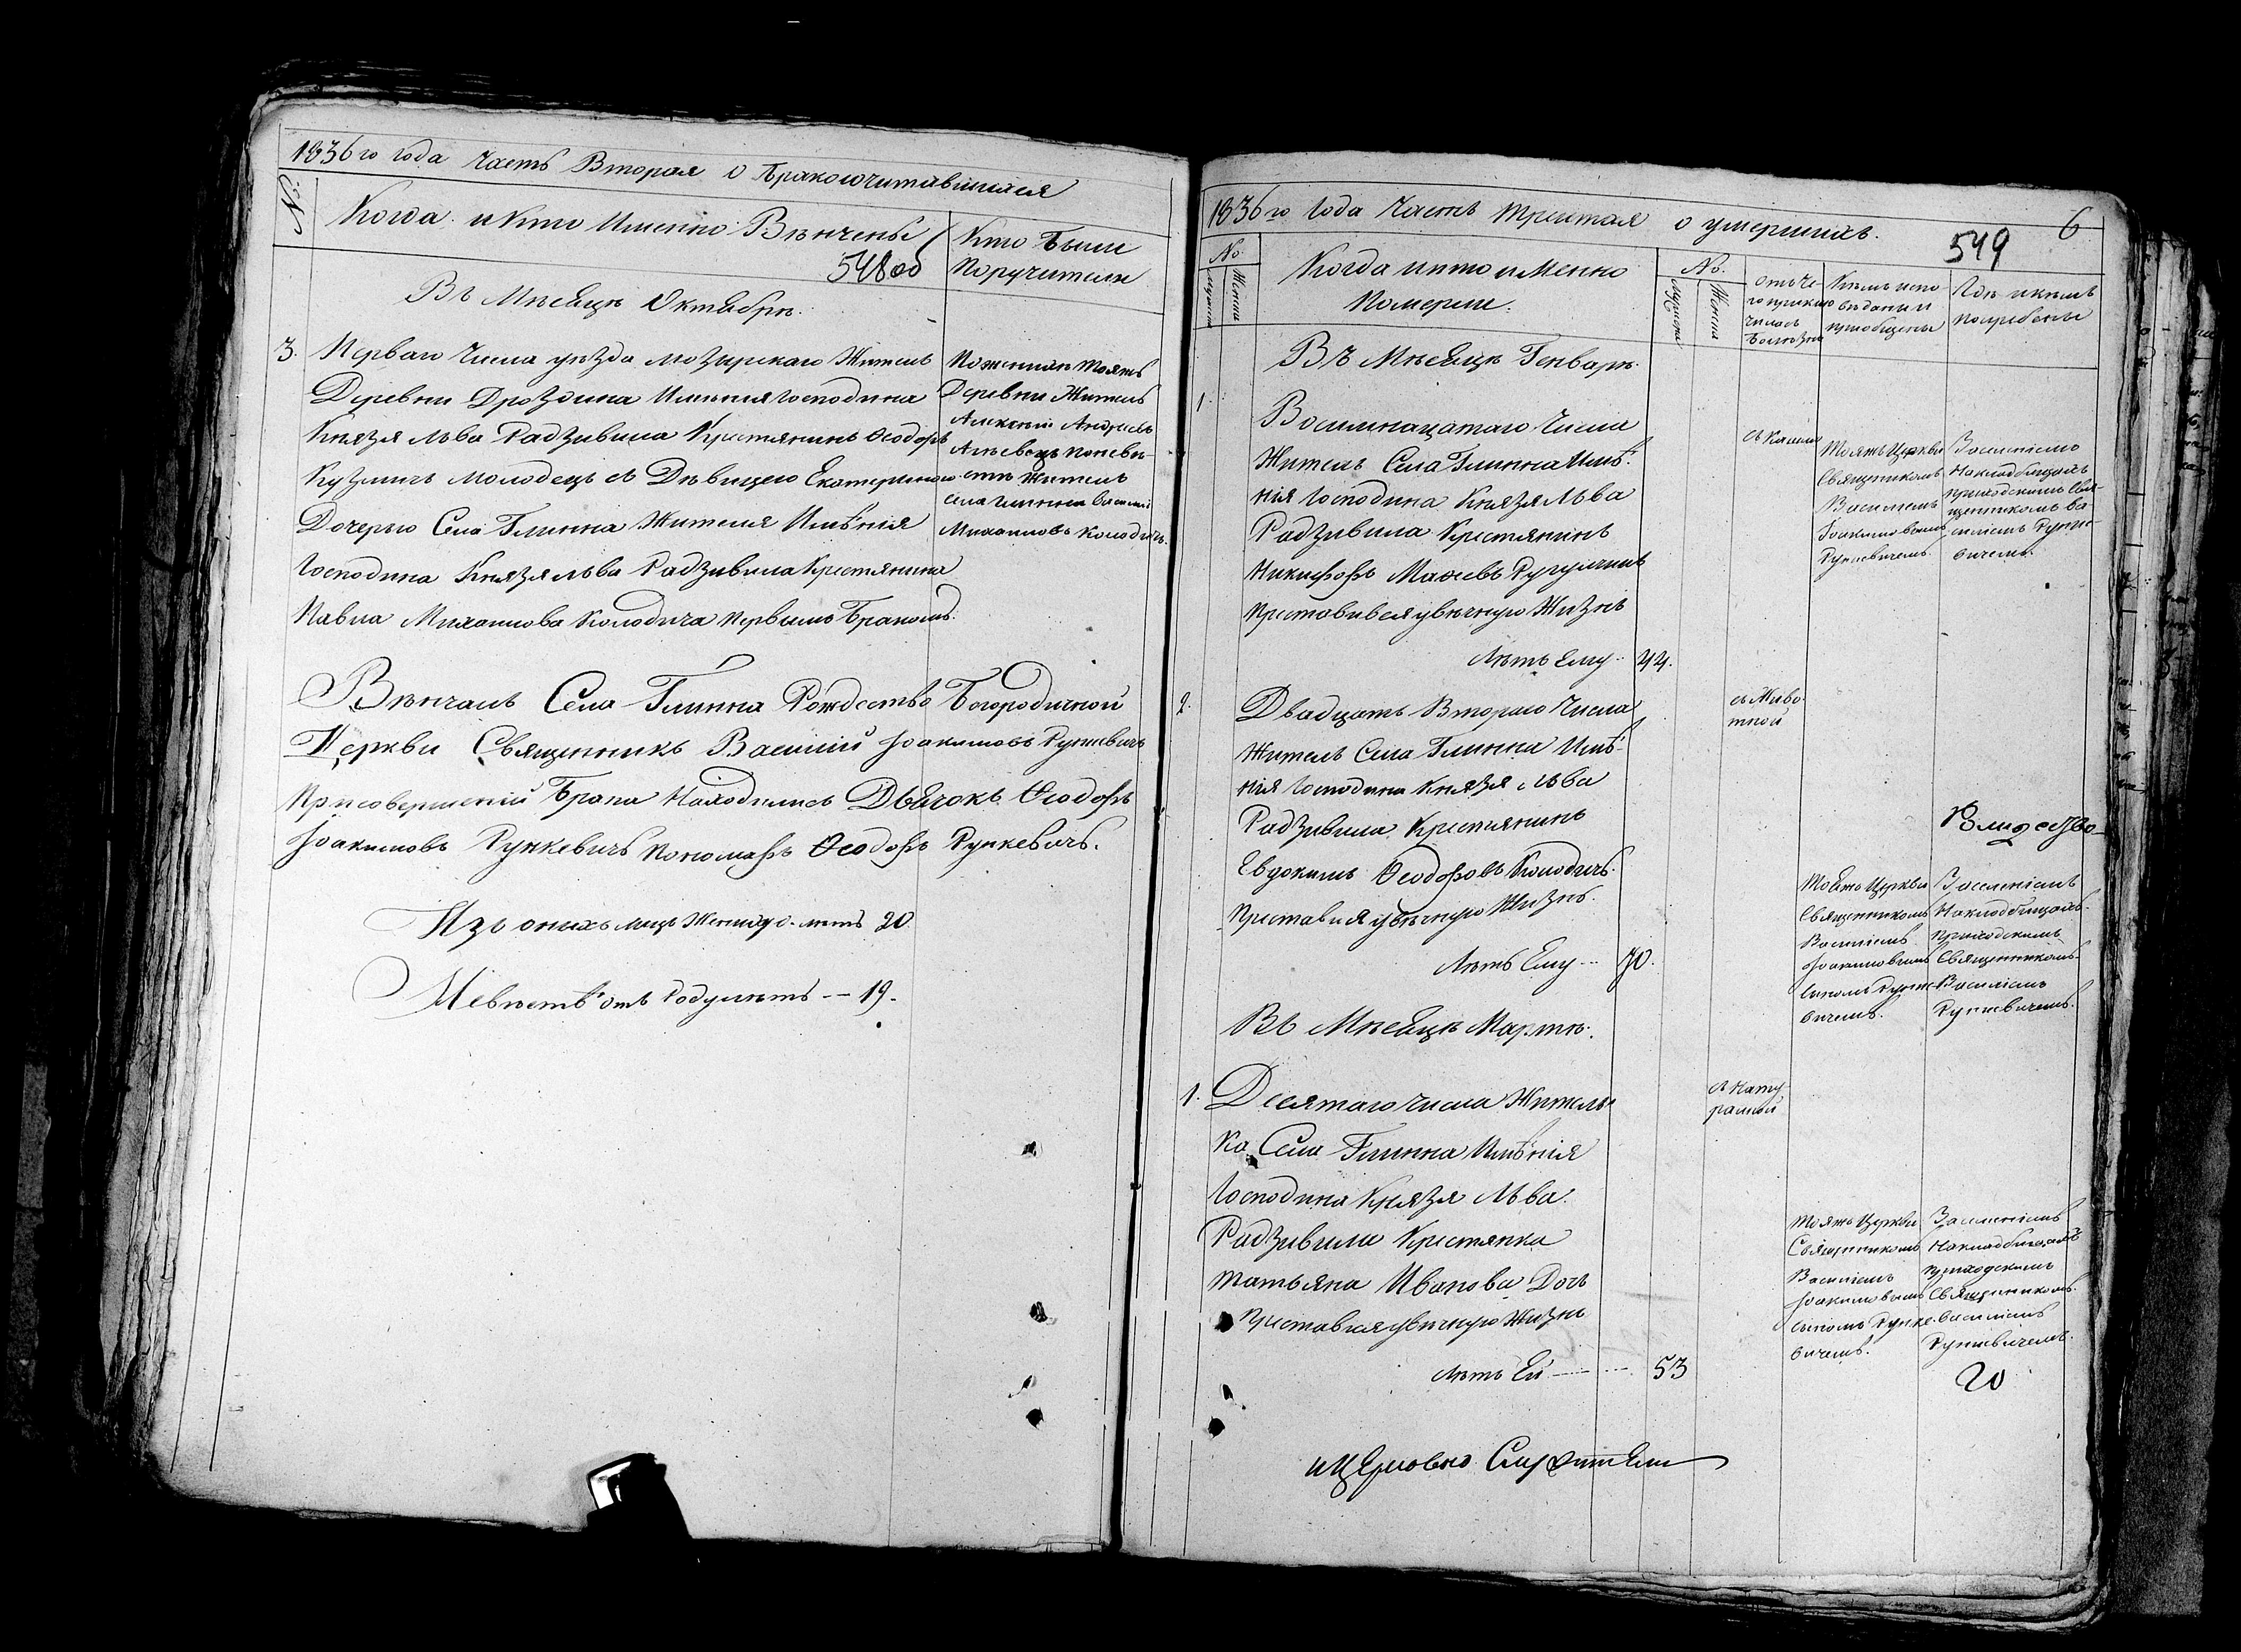 1836го года Часть Вторая о Бракосочитавшихся
№
Когда и Кто Именно Венчены
Кто Были
Поручители
548об
Въ Месяце Октабре.
3. Перваго Числа уезда мозырскаго Житель
Деревни Дроздина Имения Господина
Князя Льва Радзивила Крестянинъ Ѳеодоръ
Кузмичъ молодецъ съ Девицею Екатериною
Дочерью Села Глинна Жителя Именія
Господина Князя Льва Радзивила Крестянина
Павла Михаилова Колодича Первымъ Бракомъ.
Тояжъ
Деревни Житель
Алексей Андреевъ
Житель
села Глинна Василій
Михаиловъ Колодичъ.
Венчалъ Села Глинна Рождество Богородичной
Церкви Священникъ Василій Іоакимовъ Рункевичъ
При совершеній Брака Находились Дьячокъ Ѳеодоръ
Іоакимовъ Рункевичъ Пономаръ Ѳеодоръ Рункевичъ.
Изъ оныхъ лицъ Жениху о. летъ 20.
Невесте отъ Роду летъ — 19.
1836го Года Часть Третая о умершихъ.
6
549
№.
Мужеска
Женска
Когда и кто иМенно
Померли.
№.
Мужеска
Женска
отъ Че-
го приклю
чилась
Болезнь
Кемъ испо
веданы и
приобщены
Где и кемъ
погребены
Въ Месяце Генваре.
1.
Восимнацатаго Числа
Житель Села Глинна Име-
нія Господина Князя Льва
Радзивила Крестянинъ
Никифоръ
Преставився у вечную Жизнь
Летъ Ему - 44.
съ Кашлю
Тояжъ Церкви
Священикомъ
Василемъ
Іоакимовымъ
Рункевичемъ.
На кладбищахъ
приходскимъ Свя-
щенникомъ Ва-
силіемъ Рунке-
вичемъ.
2.
Двадцать Втораго Числа
Житель Села Глинна Име-
нія Господина Князя Льва
Радзивила Крестянинъ
Евдокимъ Ѳеодоровъ Колодичъ.
Преставися у вечную Жизнь.
Летъ Ему -- 70.
съ Живо-
тной
Тояжъ Церкви
Священникомъ
Василіемъ
Іоакимовымъ
сыномъ Рунке-
вичемъ.
На кладбищахъ
Приходскимъ
Священникомъ
Василіемъ
Рункевичемъ.
Въ Месяце Марте.
1.
Десятаго числа Житель-
ка Села Глинна Именія
Господина Князя Льва
Радзивила Крестянка
татьяна Иванова Дочь
Преставися у вечную Жизнь
Летъ Ей — 53
съ Нату-
ралной
Тояжъ Церкви
Священникомъ
Василіемъ
Іоакимовымъ
сыномъ Рунке-
вичемъ.
На кладбищахъ
приходскимъ
Священникомъ
Василіемъ
Рункевичемъ.
20